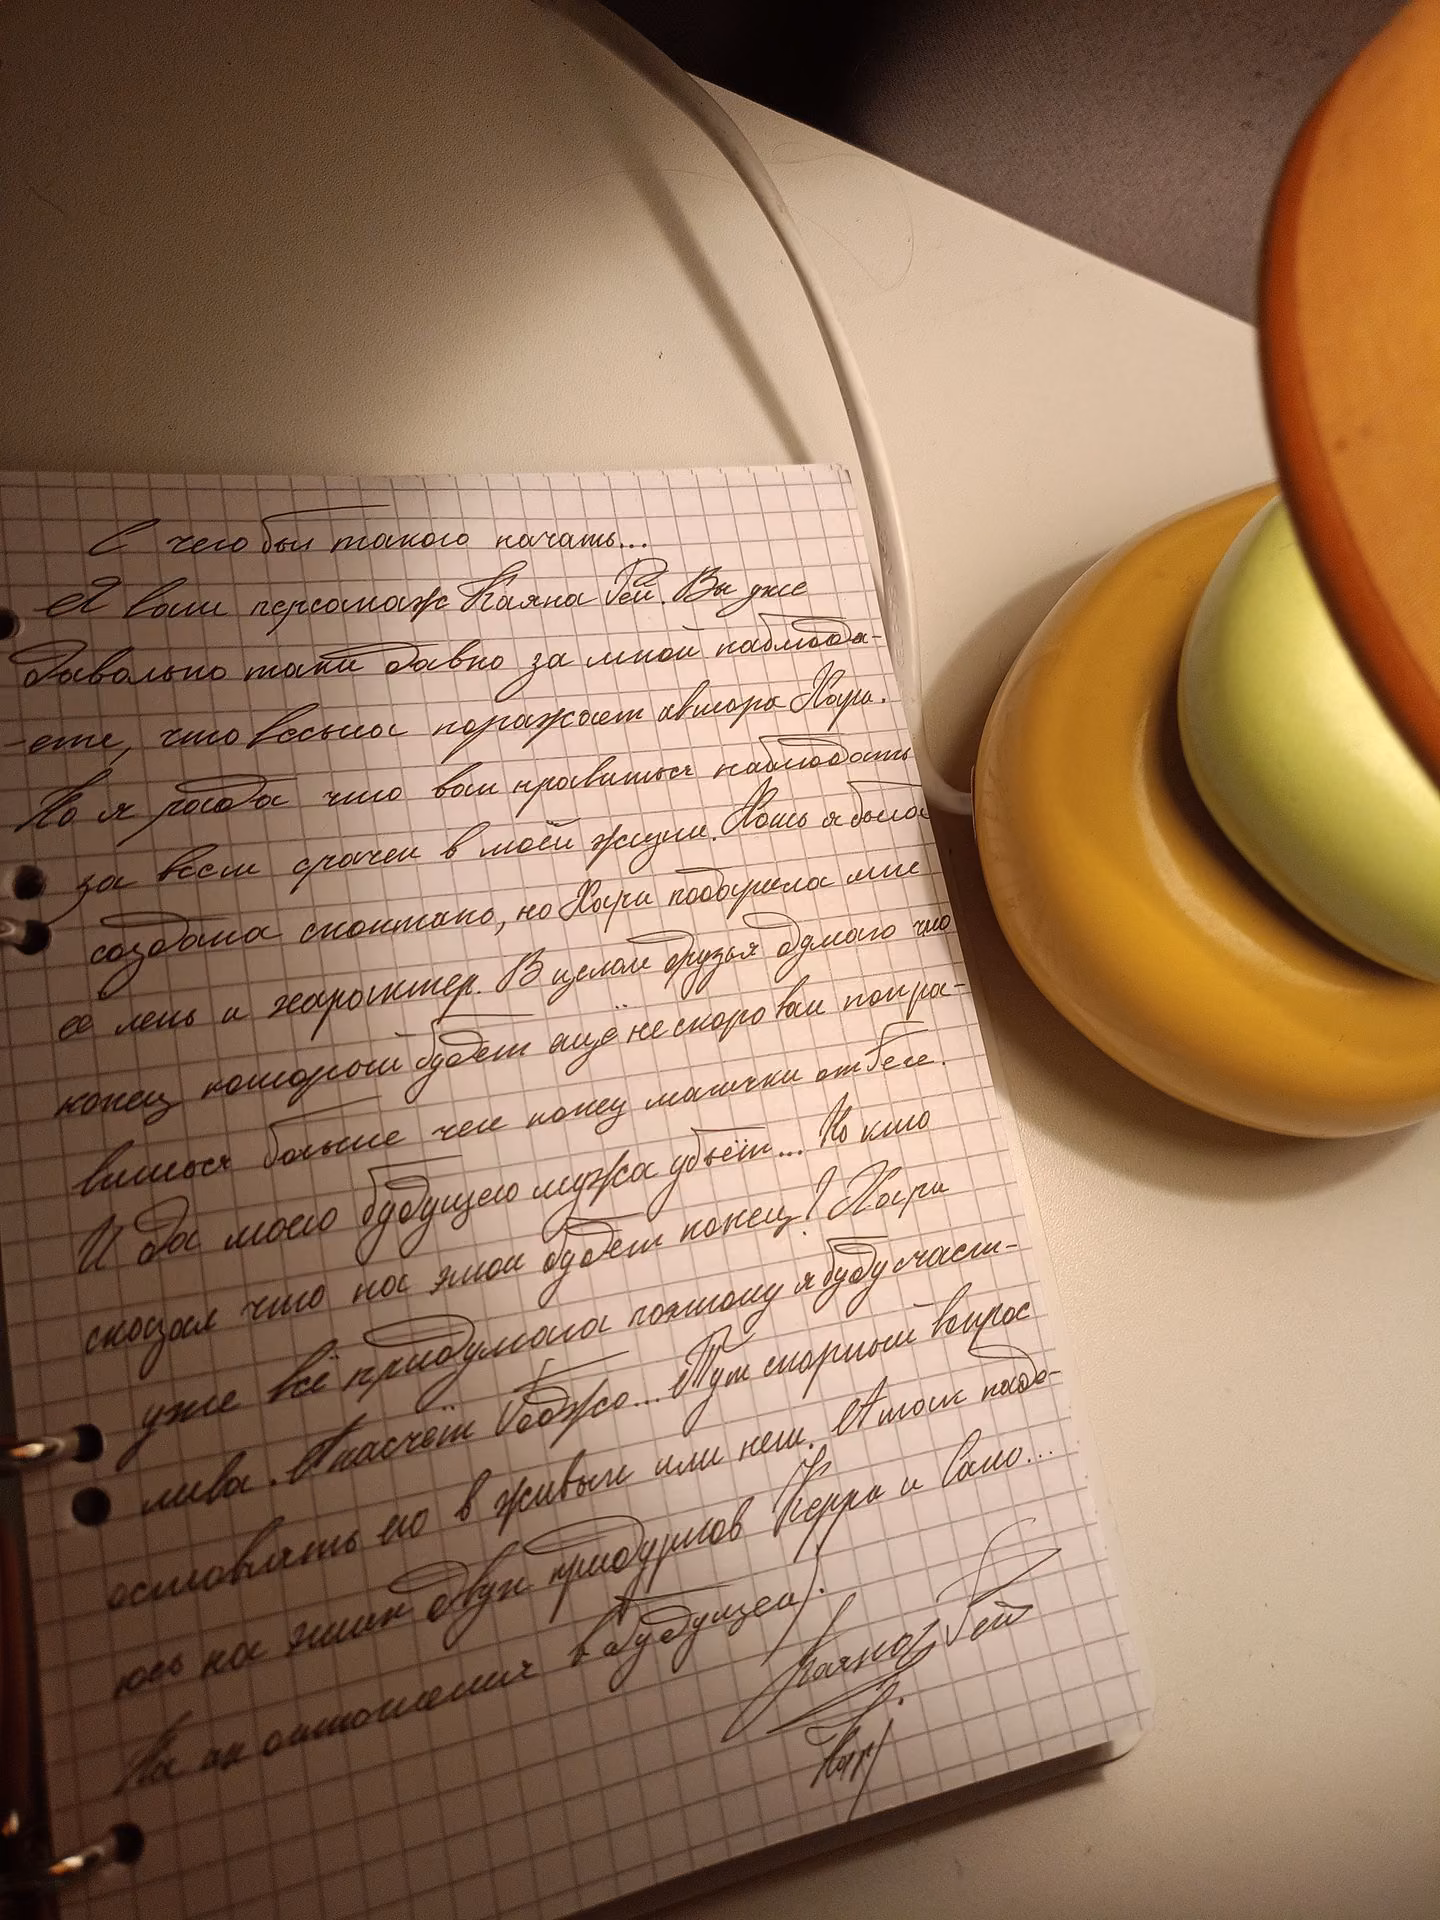 С чего бы такого начать...
Я ваш персонаж Каяна Гей. Вы уже
давольно таки давно за мной наблюда-
-ете, что весьма поражает автора Хари.
Но я рада что вам нравиться наблюдать
за всем срачем в моей жизни. Хоть я была
создана спонтано, но Хари подарила мне
её лень и характер. В целом друзья думаю что
конец который будет ещё не скоро вам понра-
виться больше чем конец магички от Геге.
И да моего будущего мужа убьёт... Но кто
сказал что на этом будет конец? Хари
уже всё придумала поэтому я буду счаст-
лива. А насчёт Годжо... Тут спорный вопрос
оставлять его в живых или нет. А так наде-
юсь на этих двух придурков Керра и Сано...
На их отношения в будущем).
Каяна Гей